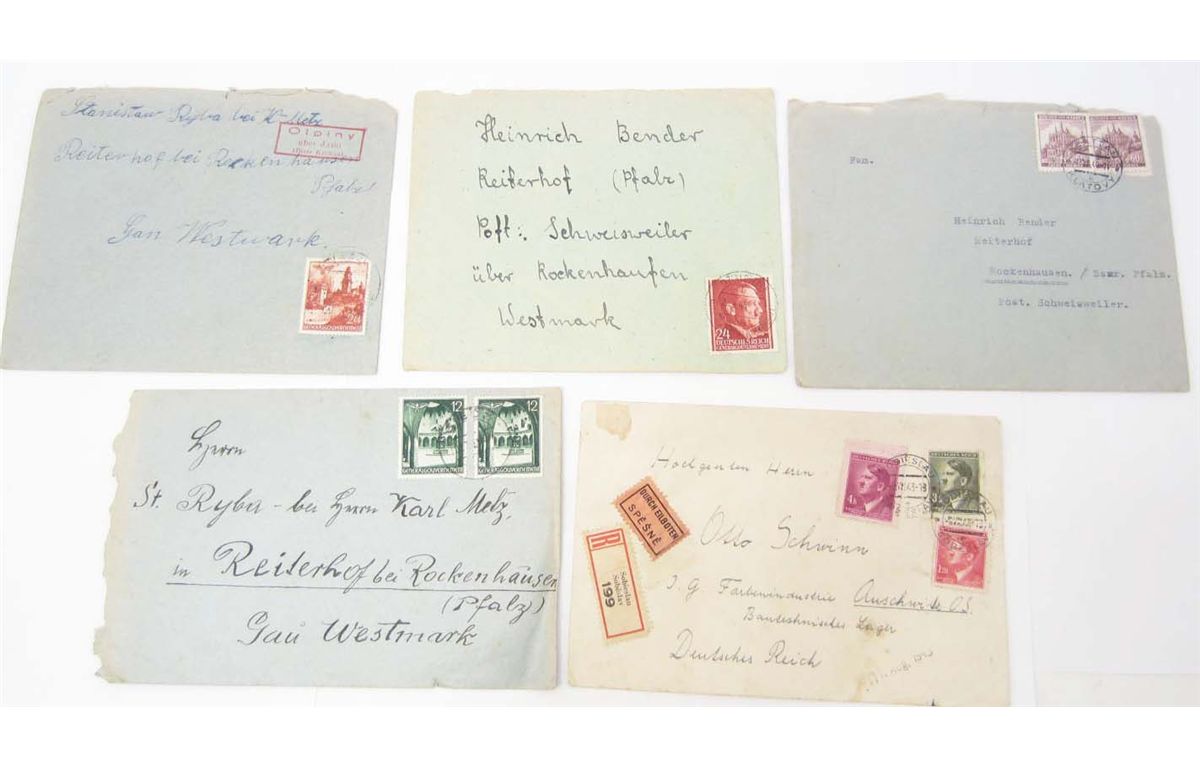 Stanislaw Ryba bei K. Metz
Reiterhof bei Rockenhausen
Pfalz
Gau Westmark.
Olpiny
über Jaslo
GENERALGOUVERNEMENT
Heinrich Bender
Reiterhof (Pfalz)
Post: Schweisweiler
über Rockenhausen
Westmark
24
DEUTSCHES REICH
GENERALGOUVERNEMENT
Fam.
Heinrich Bender
Reiterhof
Rockenhausen. / Saar. Pfalz.
Post. Schweisweiler.
Herrn
St. Ryba - bei Herrn Karl Metz,
in Reiterhof bei Rockenhausen
(Pfalz)
Gau Westmark
12
GENERALGOUVERNEMENT
12
GENERALGOUVERNEMENT
Herrn
Otto Schwinn
I. G Farbenindustrie Auschwitz O.S.
Bautechnisches Lager
Deutsches Reich
DURCH EILBOTEN
SPĚŠNĚ
R
Sobieslau
Soběslav
199
DEUTSCHES REICH
4K
DEUTSCHES REICH
1.20